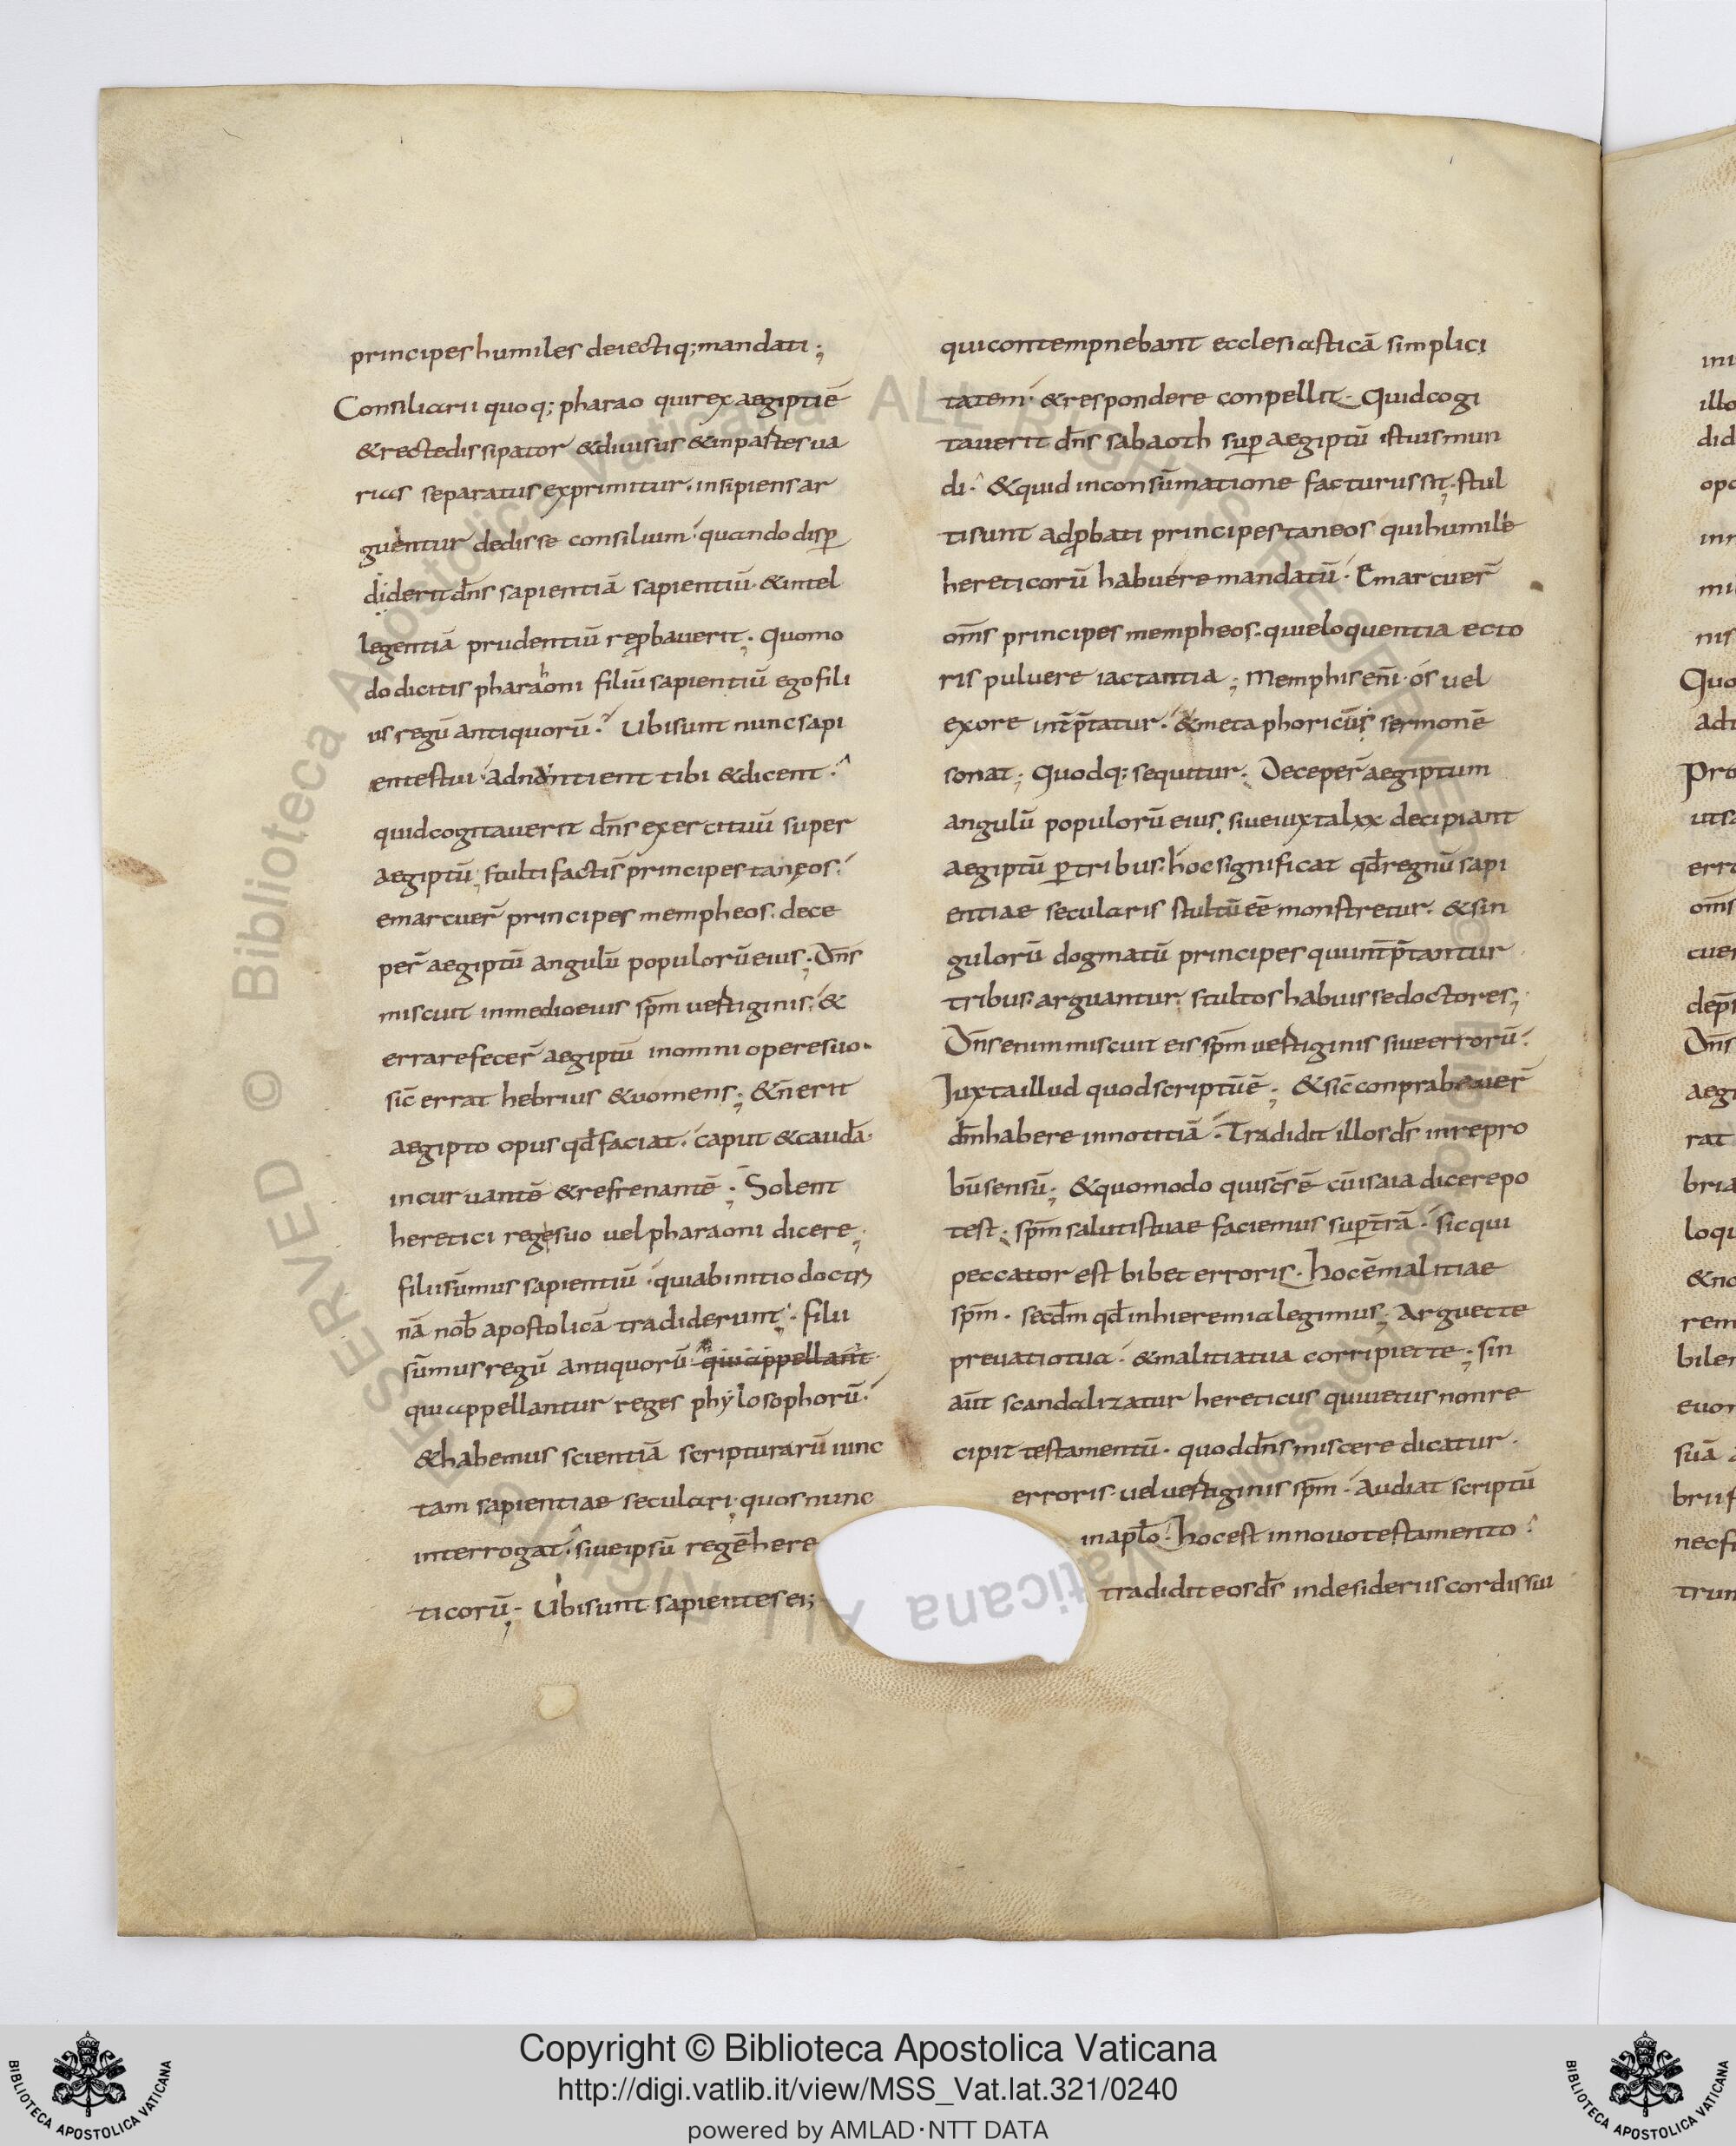 principes humiles deiectiq; mandati;
Consiliarii quoq; pharao qui rex aegipti ē
& recte dissipator & diuisus & in partes ua
rias separatus exprimitur. insipiens ar
guentur dedisse consilium. quando disp
diderit dn̄s sapientiā sapientiū & intel
legentiā prudentiū reprobauerit; Quomo
do dicitis pharaoni filiū sapientiū ego fili
us regū antiquorū. Ubi sunt nunc sapi
entes tui. adnontient tibi & dicent.
quid cogitauerit dn̄s exercituū super
aegiptū; stulti facti s̄ principes taneos.
emarcuer̄ principes mempheos. dece
per̄ aegiptū angulū populorū eius; Dn̄s
miscuit in medio eius sp̄m uertiginis. &
errare fecer̄ aegiptū in omni opere suo.
sic̄ errat hebrius & uomens; & n̄ erit
aegipto opus qd̄ faciat. caput & caudā.
incuruantē & refrenantē; Solent
heretici rege suo uel pharaoni dicere;
filii sumus sapientiū. qui ab initio doctri
nā nob̄ apostolicā tradiderunt. filii
sum̄us regū antiquorū qui appellant
qui appellantur reges phylosophorū.
& habemus scientiā scripturarū iunc
tam sapientiae seculari. quos nunc
interrogat. siue ipsū regē here
ticorū. Ubi sunt sapientes ei;
qui contempnebant ecclesiasticā simplici
tatem. & respondere conpellit. Quid cogi
tauerit dn̄s sabaoth sup aegiptū istius mun
di. & quid in consum̄atione facturus sit; stul
ti sunt adprobati principes taneos qui humile
hereticorū habuere mandatū. Emarcuer̄
om̄s principes mempheos. qui eloquentia ecto
ris puluere iactantia; Memphis eni̅ os uel
ex ore int̄p̄tatur. & metaphoricus sermonē
sonat; Quodq; sequitur. Deceper̄ aegiptum
angulū populorū eius. siue iuxta lxx decipiant
aegiptū p tribus. hoc significat qd̄ regnū sapi
entiae secularis stultū eē monstretur. & sin
gulorū dogmatū principes qui int̄p̄tantur
tribus. arguantur stultos habuisse doctores;
Dn̄s enim miscuit eis sp̄m uertiginis siue errorū.
Iuxta illud quod scriptū ē; & sic̄ conprabauer̄
dm̄ habere in notitiā. Tradidit illos ds̄ in repro
bum̄ sensū; & quomodo qui sc̄s ē cū isaia dicere po
test. sp̄m salutis tuae faciemus sup tr̄ā. sic qui
peccator est bibet erroris. hoc ē malitiae
sp̄m. secdm̄ qd̄ in hieremia legimus; Arguet te
preuatio tua. & malitia tua corripiet te; sin
aūt scandalizatur hereticus qui uetus non re
cipit testamentū. quod dn̄s miscere dicatur.
erroris uel uertiginis sp̄m. Audiat scriptū
in apl̄o. hoc est in nouo testamento.
tradidit eos ds̄ in desideriis cordis sui
Copyright © Biblioteca Apostolica Vaticana
http://digi.vatlib.it/view/MSS_Vat.lat.321/0240
powered by AMLAD·NTT DATA